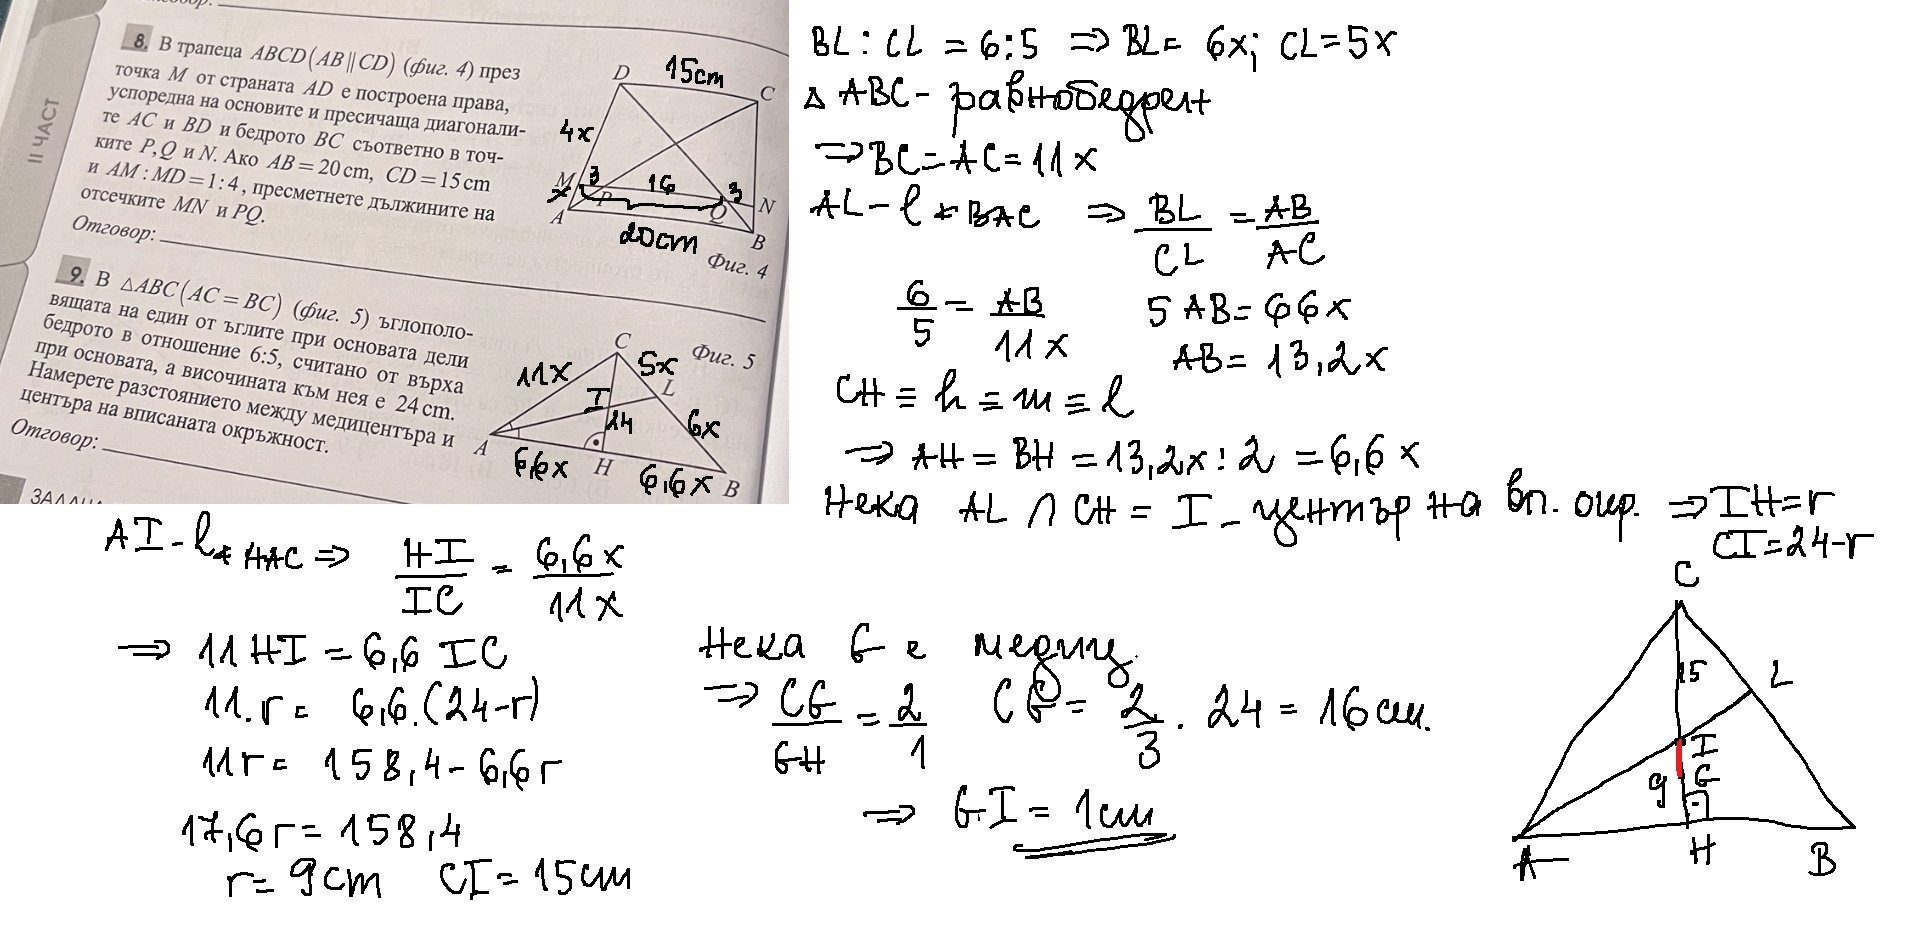 8. В трапеца ABCD (AB || CD) (фиг. 4) през
точка M от страната AD е построена права,
успоредна на основите и пресичаща диагонали-
те AC и BD и бедрото BC съответно в точ-
ките P, Q и N. Ако AB = 20 cm, CD = 15 cm
и AM : MD = 1 : 4, пресметнете дължините на
отсечките MN и PQ.
Отговор:
D 15cm C
4x
M 3 16 3 N
x P Q
A 20cm B
Фиг. 4
II ЧАСТ
9. В △ABC (AC = BC) (фиг. 5) ъглополо-
вящата на един от ъглите при основата дели
бедрото в отношение 6:5, считано от върха
при основата, а височината към нея е 24 cm.
Намерете разстоянието между медицентъра и
центъра на вписаната окръжност.
Отговор:
C Фиг. 5
11x 5x
I L
24 6x
A 6,6x H 6,6x B
BL : CL = 6:5 ⇒ BL = 6x; CL = 5x
△ ABC - равнобедрен
⇒ BC = AC = 11x
AL - l ∢ BAC ⇒ BL/CL = AB/AC
6/5 = AB/11x 5 AB = 66x
AB = 13,2x
CH ≡ h ≡ m ≡ l
⇒ AH = BH = 13,2x : 2 = 6,6x
Нека AL ∩ CH = I - център на вп. окр. ⇒ IH = r
CI = 24-r
AI - l ∢ HAC ⇒ HI/IC = 6,6x/11x
⇒ 11 HI = 6,6 IC
11.r = 6,6.(24-r)
11r = 158,4 - 6,6r
17,6r = 158,4
r = 9cm CI = 15cm
Нека G е медиц.
⇒ CG/GH = 2/1 CG = 2/3 . 24 = 16 cm.
⇒ GI = 1cm
C
15 L
I
9 G
A H B